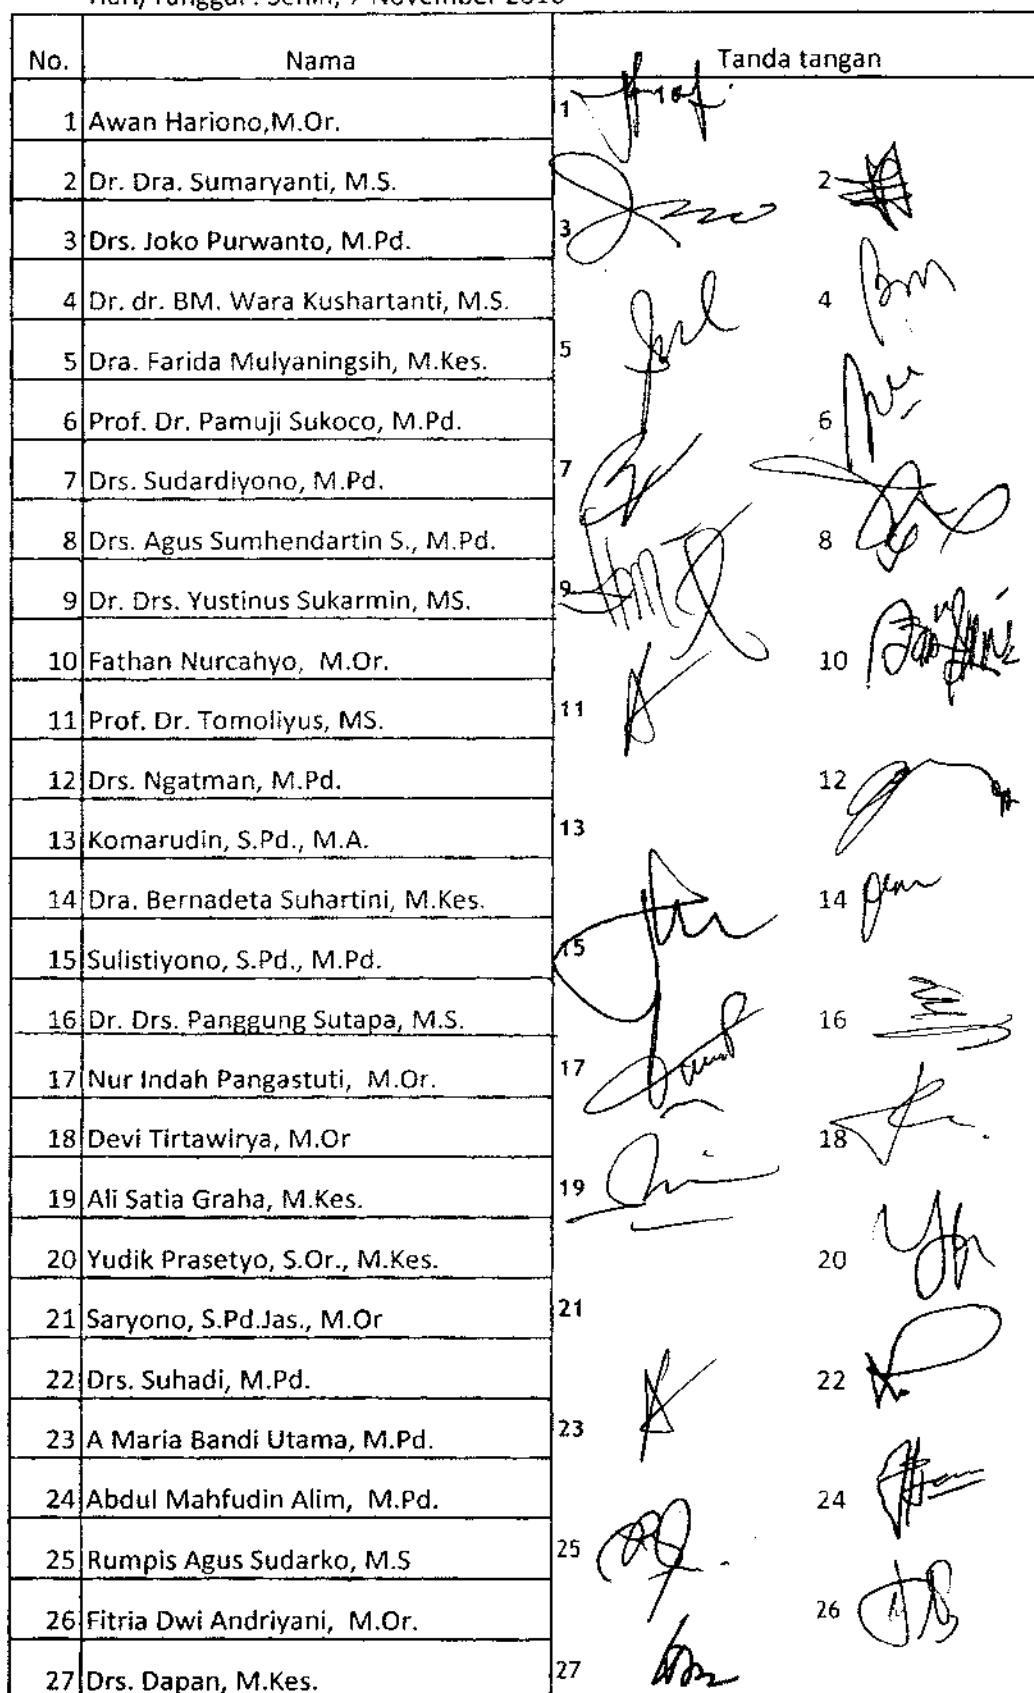 Hari/Tanggal : Senin, 7 November 2016
No. Nama Tanda tangan
1 Awan Hariono,M.Or. 1
2 Dr. Dra. Sumaryanti, M.S. 2
3 Drs. Joko Purwanto, M.Pd. 3
4 Dr. dr. BM. Wara Kushartanti, M.S. 4
5 Dra. Farida Mulyaningsih, M.Kes. 5
6 Prof. Dr. Pamuji Sukoco, M.Pd. 6
7 Drs. Sudardiyono, M.Pd. 7
8 Drs. Agus Sumhendartin S., M.Pd. 8
9 Dr. Drs. Yustinus Sukarmin, MS. 9
10 Fathan Nurcahyo, M.Or. 10
11 Prof. Dr. Tomoliyus, MS. 11
12 Drs. Ngatman, M.Pd. 12
13 Komarudin, S.Pd., M.A. 13
14 Dra. Bernadeta Suhartini, M.Kes. 14
15 Sulistiyono, S.Pd., M.Pd. 15
16 Dr. Drs. Panggung Sutapa, M.S. 16
17 Nur Indah Pangastuti, M.Or. 17
18 Devi Tirtawirya, M.Or 18
19 Ali Satia Graha, M.Kes. 19
20 Yudik Prasetyo, S.Or., M.Kes. 20
21 Saryono, S.Pd.Jas., M.Or 21
22 Drs. Suhadi, M.Pd. 22
23 A Maria Bandi Utama, M.Pd. 23
24 Abdul Mahfudin Alim, M.Pd. 24
25 Rumpis Agus Sudarko, M.S 25
26 Fitria Dwi Andriyani, M.Or. 26
27 Drs. Dapan, M.Kes. 27